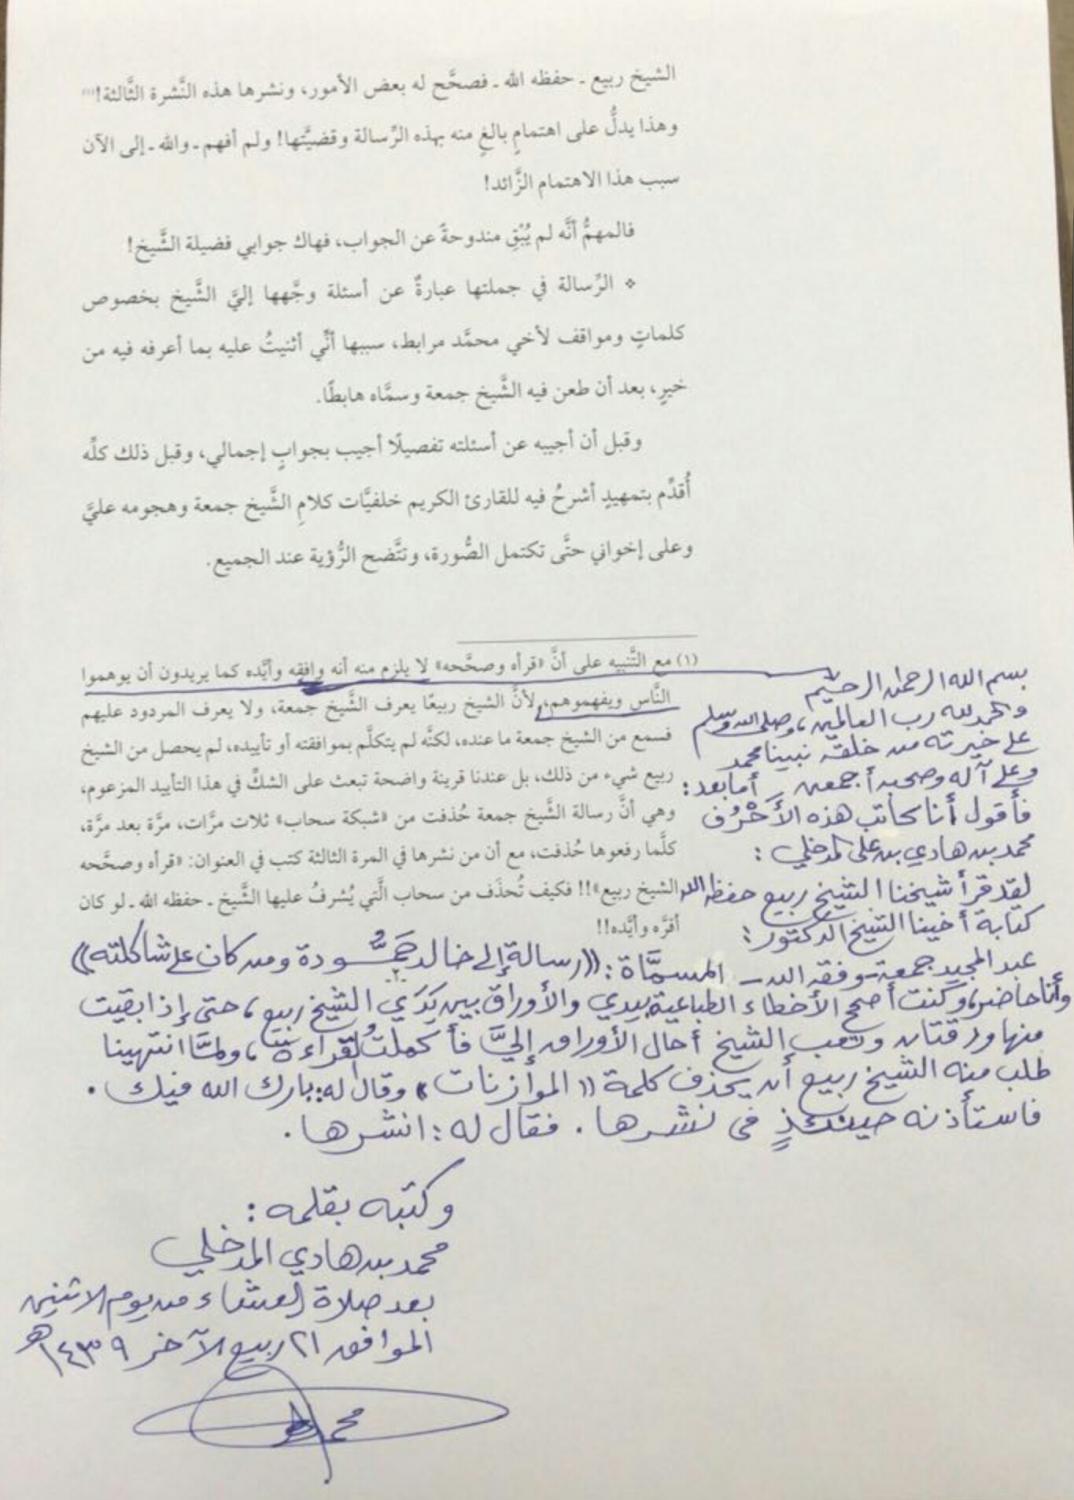 الشيخ ربيع ـ حفظه الله ـ فصحَّح له بعض الأمور، ونشرها هذه النَّشرة الثَّالثة!⁽¹⁾
وهذا يدلُّ على اهتمامٍ بالغٍ منه بهذه الرِّسالة وقضيَّتها! ولم أفهم ـ والله ـ إلى الآن
سبب هذا الاهتمام الزَّائد!
فالمهمُّ أنَّه لم يُبْقِ مندوحةً عن الجواب، فهاك جوابي فضيلة الشَّيخ!
* الرِّسالة في جملتها عبارةٌ عن أسئلة وجَّهها إليَّ الشَّيخ بخصوص
كلماتٍ ومواقف لأخي محمَّد مرابط، سببها أنِّي أثنيتُ عليه بما أعرفه فيه من
خيرٍ، بعد أن طعن فيه الشَّيخ جمعة وسمَّاه هابطًا.
وقبل أن أجيبه عن أسئلته تفصيلًا أجيب بجوابٍ إجمالي، وقبل ذلك كلِّه
أُقدِّم بتمهيدٍ أشرحُ فيه للقارئ الكريم خلفيَّات كلامِ الشَّيخ جمعة وهجومه عليَّ
وعلى إخواني حتَّى تكتمل الصُّورة، وتتَّضح الرُّؤية عند الجميع.
(١) مع التَّنبيه على أنَّ «قرأه وصحَّحه» لا يلزم منه أنه وافقه وأيَّده كما يريدون أن يوهموا
النَّاس ويفهموهم، لأنَّ الشيخ ربيعًا يعرف الشَّيخ جمعة، ولا يعرف المردود عليهم
فسمع من الشيخ جمعة ما عنده، لكنَّه لم يتكلَّم بموافقته أو تأييده، لم يحصل من الشيخ
ربيع شيء من ذلك، بل عندنا قرينة واضحة تبعث على الشكِّ في هذا التأييد المزعوم،
وهي أنَّ رسالة الشَّيخ جمعة حُذفت من «شبكة سحاب» ثلاث مرَّات، مرَّة بعد مرَّة،
كلَّما رفعوها حُذفت، مع أن من نشرها في المرة الثالثة كتب في العنوان: «قرأه وصحَّحه
الشيخ ربيع»!! فكيف تُحذَف من سحاب الَّتي يُشرفُ عليها الشَّيخ ـ حفظه الله ـ لو كان
أقرَّه وأيَّده!!
بسم الله الرحمن الرحيم
والحمد لله رب العالمين، وصلى الله وسلم
على خيرته من خلقه نبينا محمد
وعلى آله وصحبه أجمعين أما بعد:
فأقول أنا كاتب هذه الأَحْرُف
محمد بن هادي بن علي المدخلي:
لقد قرأ شيخنا الشيخ ربيع حفظه الله
كتابة أخينا الشيخ الدكتور:
عبد المجيد جمعة ـ وفقه الله ـ المسمَّاة: «رسالة إلى خالد حَمُّودة ومن كان على شاكلته»
وأنا حاضر، وكنت أصحح الأخطاء الطباعية بيدي والأوراق بين يَدَي الشيخ ربيع، حتى إذا بقيت
منها ورقتان وتعب الشيخ أحال الأوراق إليَّ فأكملتُ القراءة، ولمَّا انتهينا
طلب منه الشيخ ربيع أن يحذف كلمة «الموازنات» وقال له: بارك الله فيك.
فاستأذنه حينئذٍ في نشرها. فقال له: انشرها.
وكتبه بقلمه:
محمد بن هادي المدخلي
بعد صلاة العشاء من يوم الاثنين
الموافق ٢١ ربيع الآخر ١٤٣٩هـ